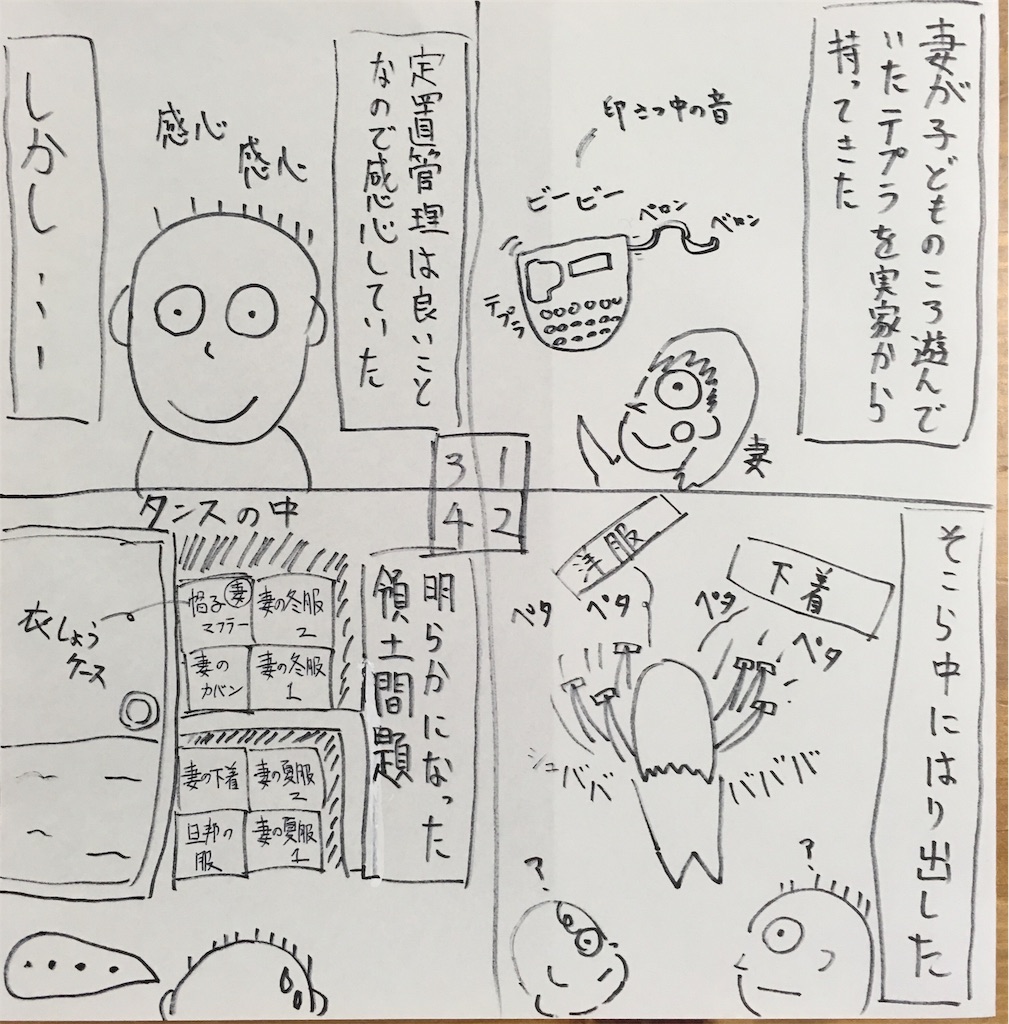 妻が子どものころ遊んで
いたテプラを実家から
持ってきた
印さつ中の音
ビービー
ベロン
ベロン
テプラ
妻
そこら中にはり出した
洋服
下着
ペタ
ペタ
ペタ
ペタ
シュババ
バババ
?
?
定置管理は良いこと
なので感心していた
感心
感心
しかし・・・
3 1
4 2
明らかになった
領土問題
タンスの中
衣しょう
ケース
帽子 妻
マフラー
妻の冬服
2
妻の
カバン
妻の冬服
1
妻の下着
妻の夏服
2
旦那の
服
妻の夏服
1
・・・・